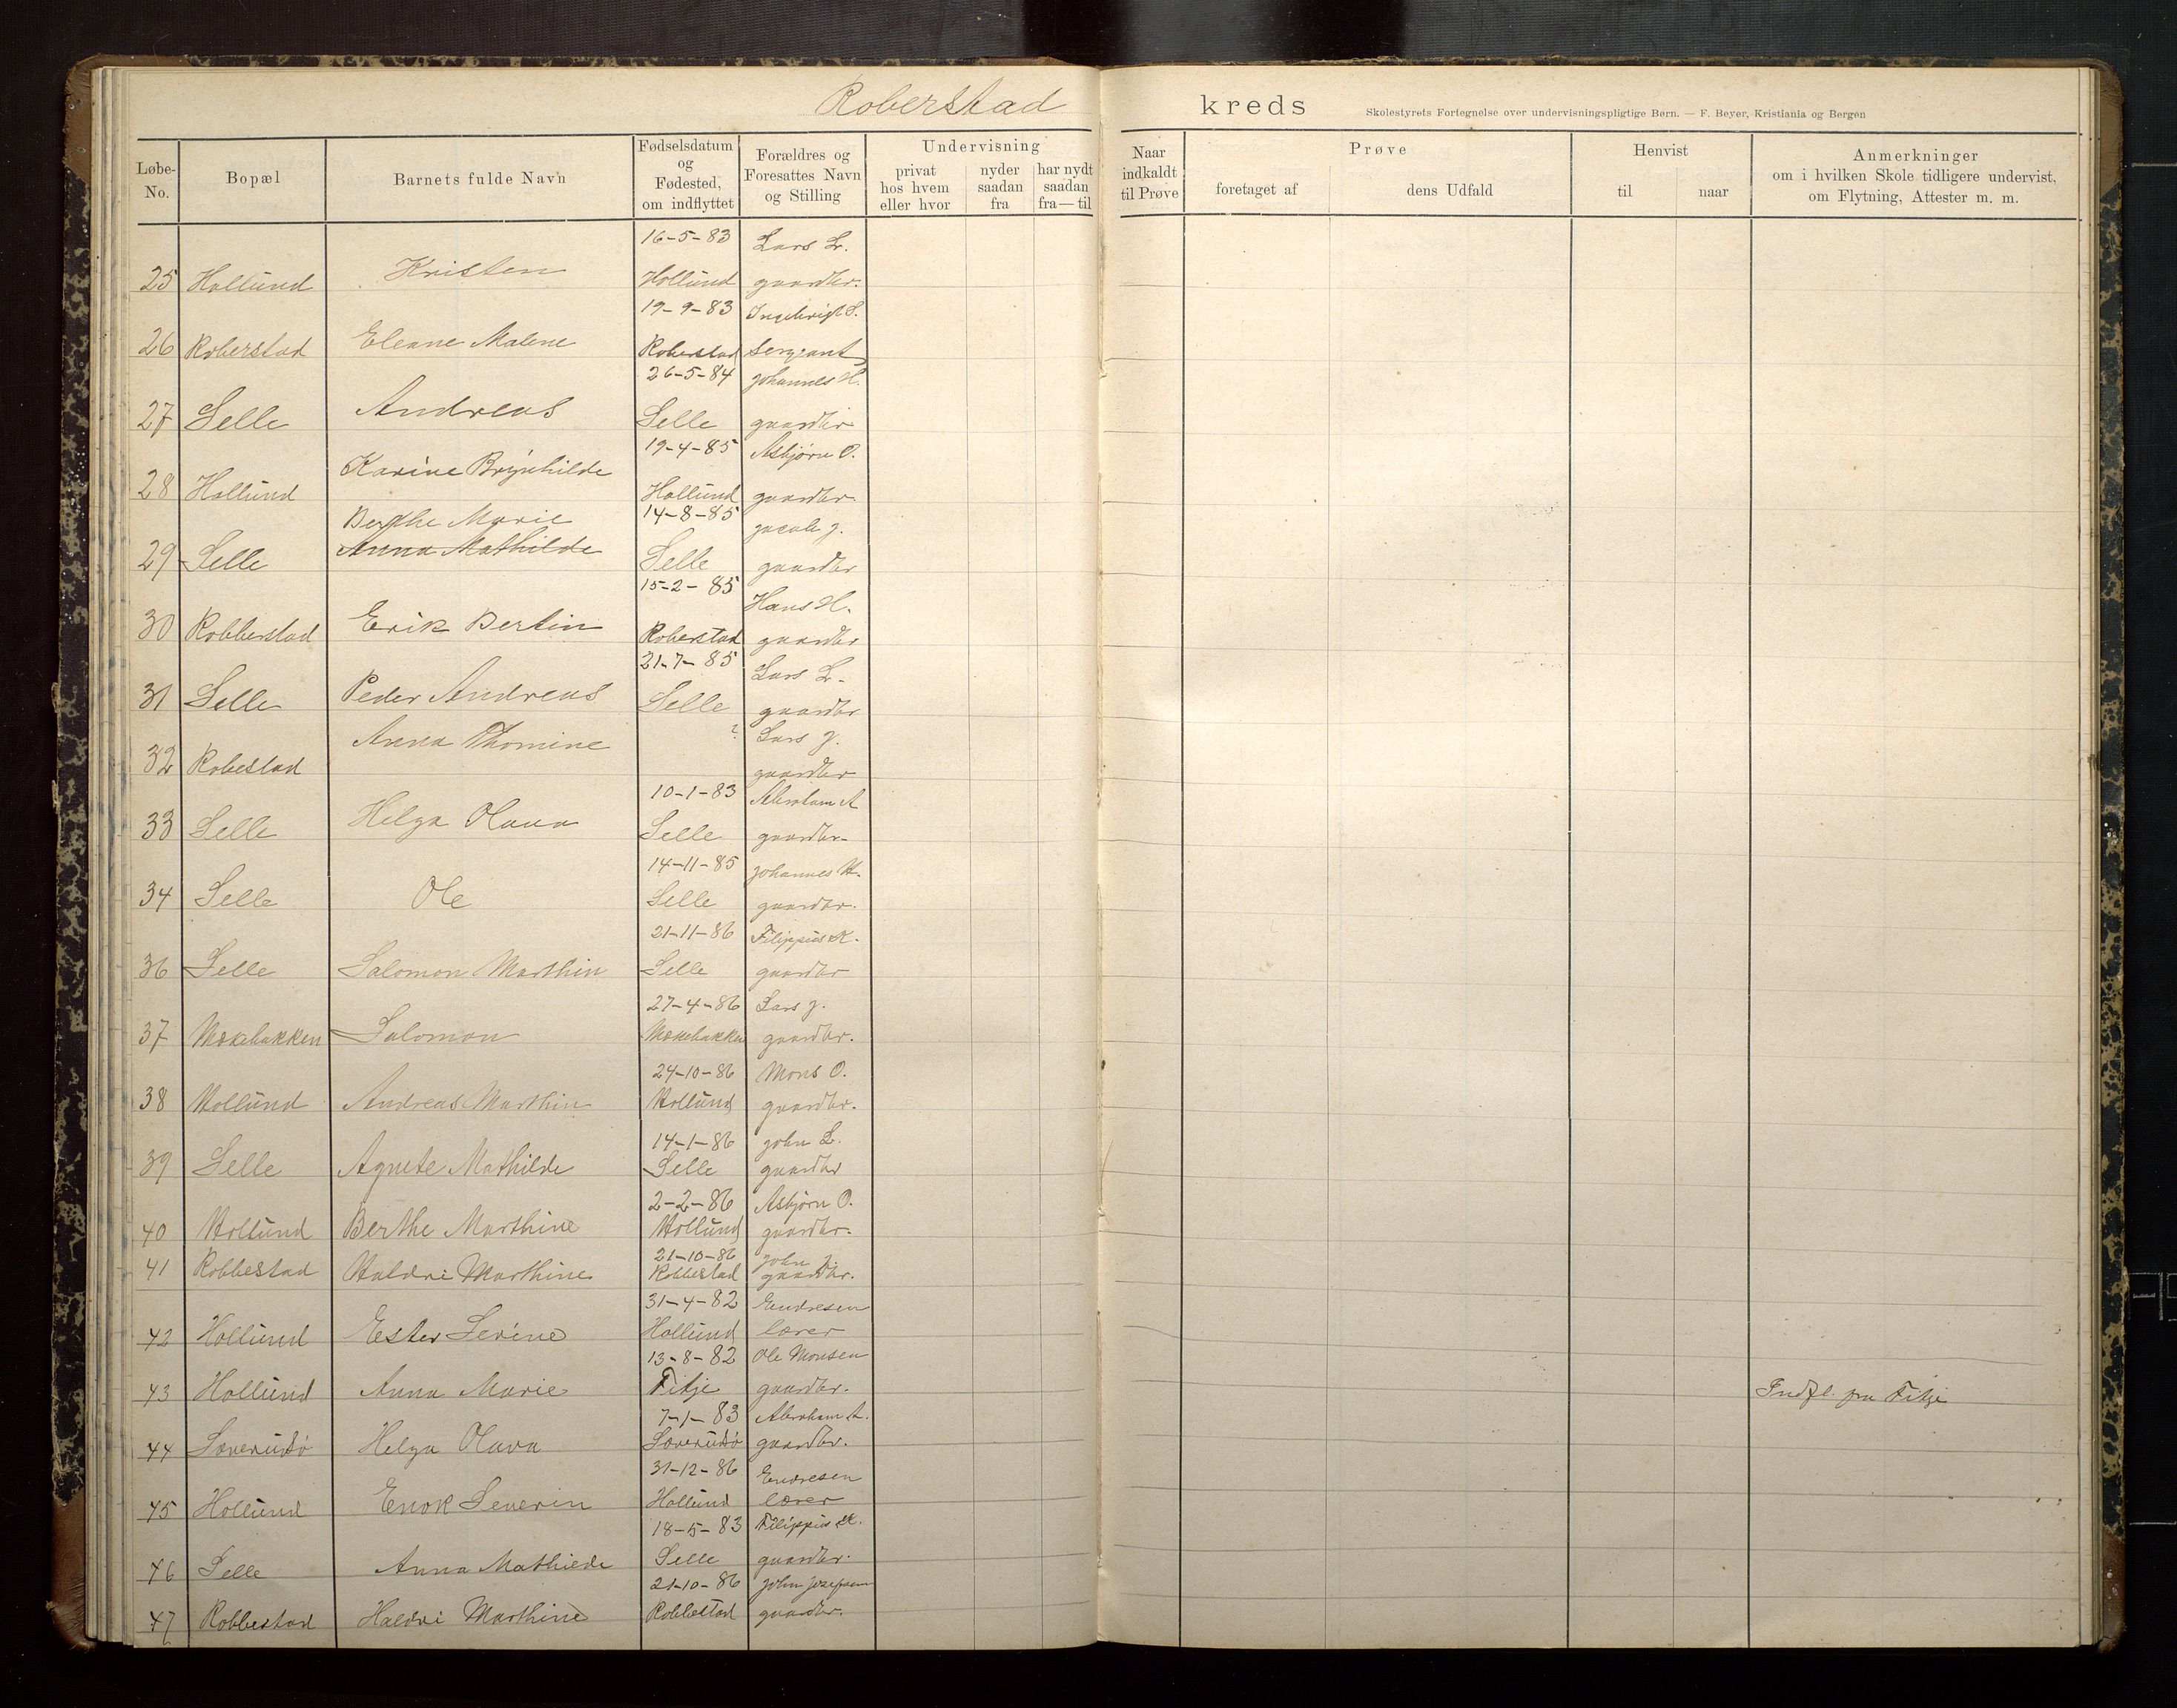 Roberstad kreds
Skolestyrets Fortegnelse over undervisningspligtige Børn. — F. Beyer, Kristiania og Bergen
Løbe-No. | Bopæl | Barnets fulde Navn | Fødselsdatum og Fødested, om indflyttet | Forældres og Foresattes Navn og Stilling | Undervisning | privat hos hvem eller hvor | nyder saadan fra | har nydt saadan fra—til | Naar indkaldt til Prøve | Prøve | foretaget af | dens Udfald | Henvist | til | naar | Anmerkninger om i hvilken Skole tidligere undervist, om Flytning, Attester m. m.
16-5-83 Lars L.
25 Hollund Kristen Hollund gaardbr.
19-9-83 Ingebrigt S.
26 Roberstad Eleane Malene Roberstad Sergeant
26-5-84 Johannes H.
27 Selle Andreas Selle gaardbr
19-4-85 Asbjørn O.
28 Hollund Karine Brynhilde Hollund gaardbr
Berthe Marie 14-8-85 Jacob J.
29 Selle Anna Mathilde Selle gaardbr
15-2-85 Hans H.
30 Robberstad Erik Bertin Roberstad gaardbr
21-7-85 Lars L.
31 Selle Peder Andreas Selle gaardbr
? Lars J.
32 Robestad Anna Thomine gaardbr
10-1-83 Abraham A
33 Selle Helga Olava Selle gaardbr.
14-11-85 Johannes H.
34 Selle Ole Selle gaardbr.
21-11-86 Filippus K.
36 Selle Salomon Marthin Selle gaardbr
27-4-86 Lars J.
37 Mækebakken Salomon Mækebakken gaardbr.
24-10-86 Mons O.
38 Hollund Andreas Marthin Hollund gaardbr.
14-1-86 John L.
39 Selle Agnete Mathilde Selle gaardbr
2-2-86 Asbjørn O.
40 Hollund Berthe Marthine Hollund gaardbr.
21-10-86 John J.
41 Robbestad Haldri Marthine Robbestad gaardbr.
31-4-82 Endresen
42 Hollund Ester Serine Hollund lærer
13-8-82 Ole Monsen
43 Hollund Anna Marie Fitje gaardbr. Indfl. fra Fitje
7-1-83 Abraham A.
44 Helga Olava gaardbr.
31-12-86 Endresen
45 Hollund Enok Severin Hollund lærer
18-5-83 Filippus K.
46 Selle Anna Mathilde Selle gaardbr.
21-10-86 John Josefsen
47 Robbestad Haldri Marthine Robbestad gaardbr.